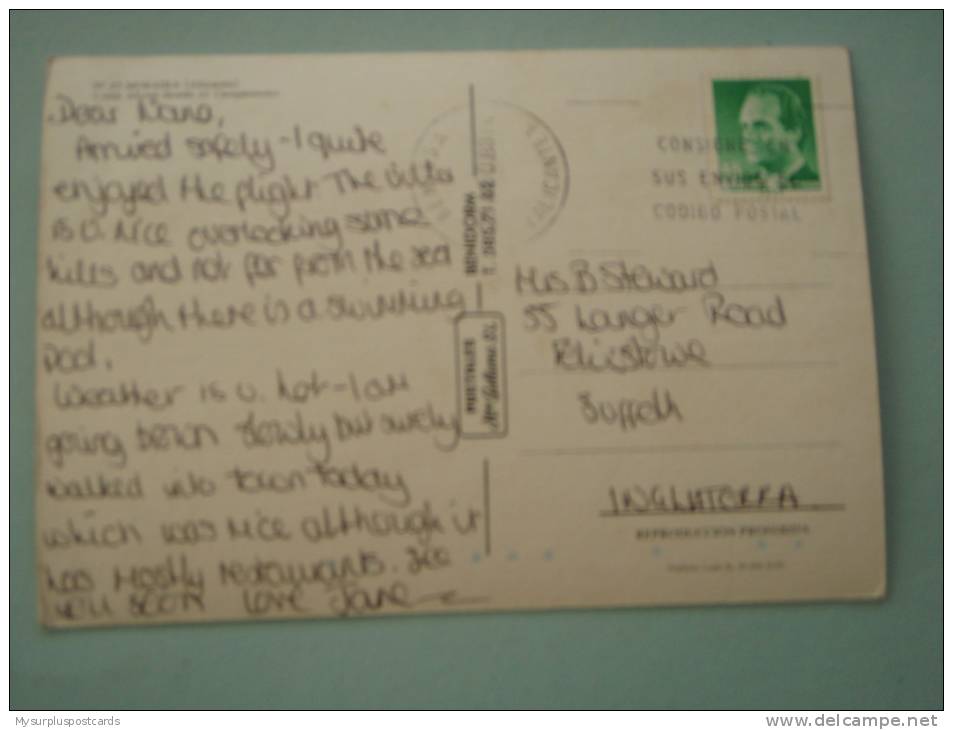 Dear Nana,
Arrived safely - I quite
enjoyed the flight The villa
is v. nice overlooking some
hills and not far from the sea
although there is a swimming
pool.
Weather is v. hot - I am
going brown slowly but surely
walked into town today
which was nice although it
has mostly restaurants. See
you soon Love Jane
BENIDORM
ALICANTE
CONSIGNE EN
SUS ENVIOS EL
CODIGO POSTAL
Mrs B Steward
55 Langer Road
Felixstowe
Suffolk
INGLATERRA
REPRODUCCION PROHIBIDA
Mysurpluspostcards
www.delcampe.net